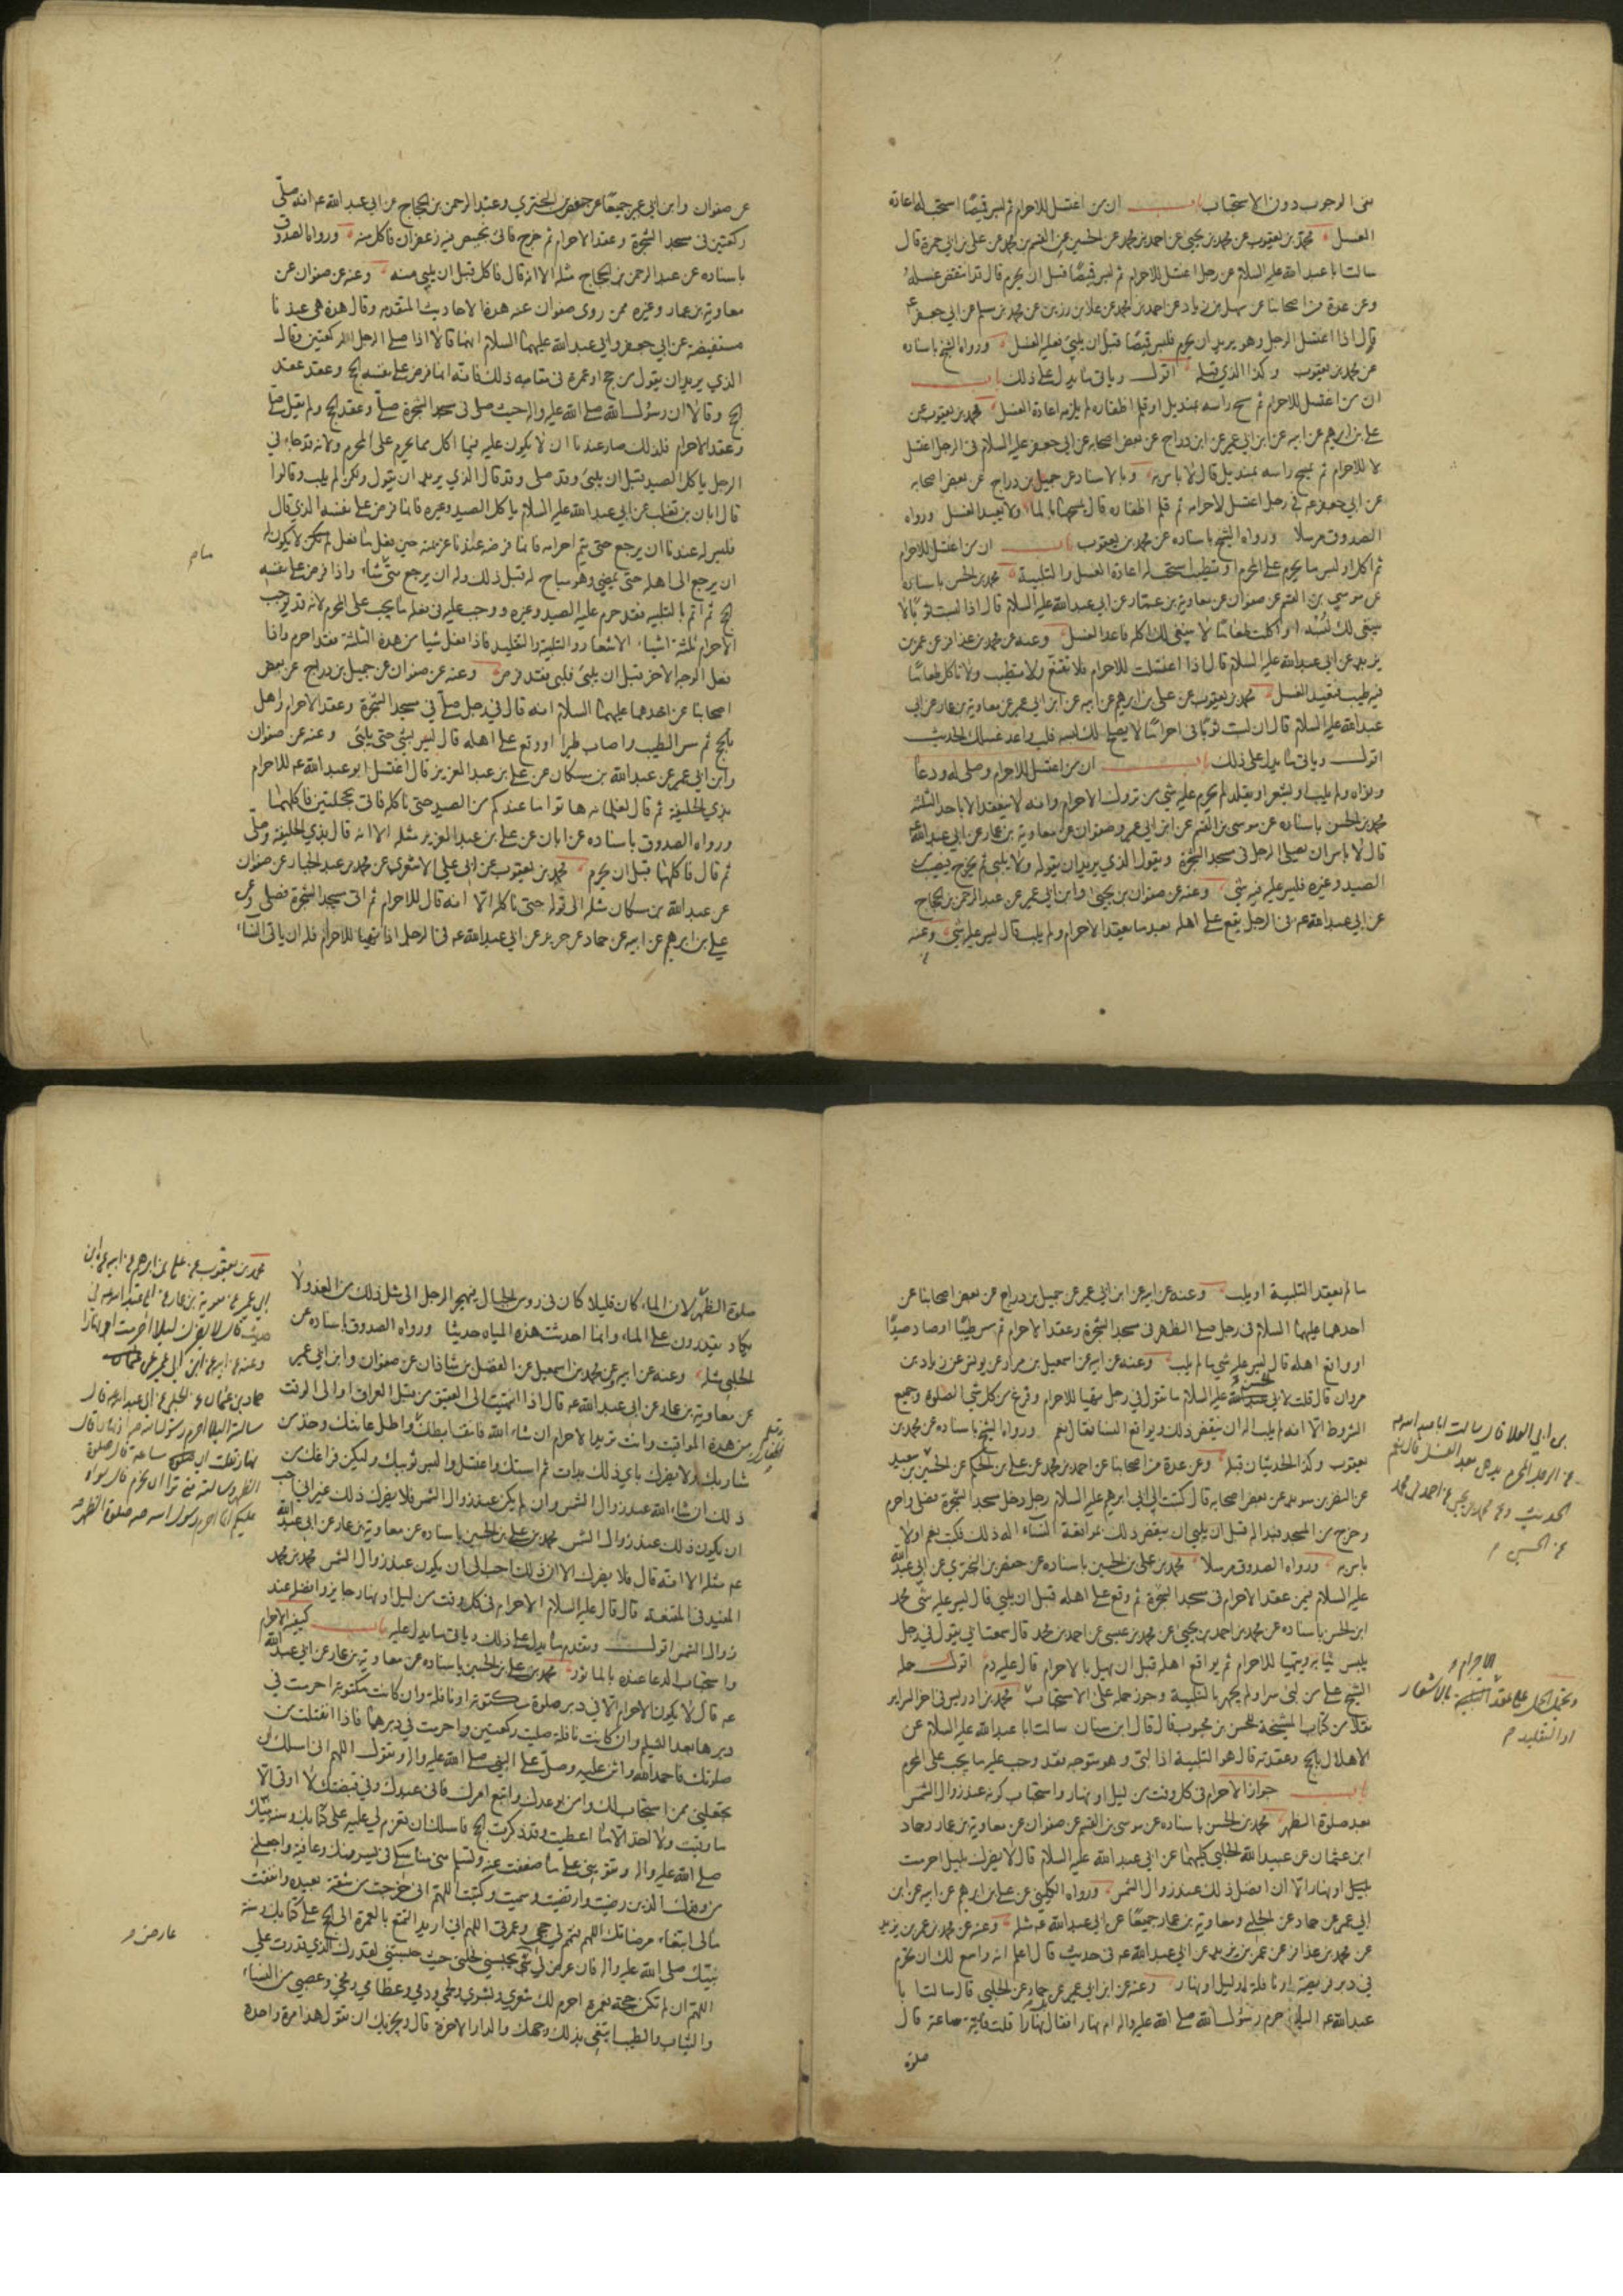 نفى الوجوب دون الاستحباب باب ان من اغتسل للاحرام ثم لبس قميصا استحب له اعادة
الغسل محمد بن يعقوب عن محمد بن يحيى عن احمد بن محمد عن الحسين عن القسم بن محمد عن علي بن ابي حمزة قال
سالت ابا عبد الله عليه السلام عن رجل اغتسل للاحرام ثم لبس قميصا قبل ان يحرم قال قد انتقض غسله
وعن عدة من اصحابنا عن سهل بن زياد عن احمد بن محمد عن علا بن رزين عن محمد بن مسلم عن ابي جعفر ع
قال اذا اغتسل الرجل وهو يريد ان يحرم فلبس قميصا قبل ان يلبي فعليه الغسل ورواه الشيخ باسناده
عن محمد بن يعقوب وكذا الذي قبله اقول وياتي ما يدل على ذلك باب
ان من اغتسل للاحرام ثم مسح راسه بمنديل او قلم اظفاره لم يلزمه اعادة الغسل محمد بن يعقوب عن
علي بن ابرهيم عن ابيه عن ابن ابي عمير عن ابن دراج عن بعض اصحابه عن ابي جعفر عليه السلام في الرجل اغتسل
للاحرام ثم يمسح راسه بمنديل قال لا باس به وبالاسناد عن جميل بن دراج عن بعض اصحابه
عن ابي جعفر عه في رجل اغتسل لاحرامه ثم قلم اظفاره قال يمسحها بالماء ولا يعيد الغسل ورواه
الصدوق مرسلا ورواه الشيخ باسناده عن محمد بن يعقوب باب ان من اغتسل للاحرام
ثم اكل او لبس ما يحرم على المحرم او تطيب استحب له اعادة الغسل والتلبية محمد بن الحسن باسناده
عن موسى بن القسم عن صفوان عن معاوية بن عمار عن ابي عبد الله عليه السلام قال اذا لبست ثوبا لا
ينبغي لك لبسه او اكلت طعاما لا ينبغي لك اكله فاعد الغسل وعنه عن محمد بن عذافر عن عمر بن
يزيد عن ابي عبد الله عليه السلام قال اذا اغتسلت للاحرام فلا تقنع ولا تطيب ولا تاكل طعاما
فيه طيب فتعيد الغسل محمد بن يعقوب عن علي بن ابرهيم عن ابيه عن ابن ابي عمير عن معاوية بن عمار عن ابي
عبد الله عليه السلام قال ان لبست ثوبا في احرامك لا يصلح لك لبسه فلب واعد غسلك الحديث
اقول وياتي ما يدل على ذلك باب ان من اغتسل للاحرام وصلى له ودعا
ونواه ولم يلب او يشعر او يقلد لم يحرم عليه شي من تروك الاحرام وانه لا ينعقد الا باحد الثلثة
محمد بن الحسن باسناده عن موسى بن القسم عن ابن ابي عمير وصفوان عن معاوية بن عمار عن ابي عبد الله ع
قال لا باس ان يصلي الرجل في مسجد الشجرة ويقول الذي يريد ان يقوله ولا يلبي ثم يخرج فيصيب
الصيد وغيره فليس عليه فيه شي وعنه عن صفوان بن يحيى وابن ابي عمير عن عبد الرحمن بن الحجاج
عن ابي عبد الله عه في الرجل يقع على اهله بعد ما يعقد الاحرام ولم يلب قال ليس عليه شي وعنه
عن صفوان وابن ابي عمير جميعا عن حفص بن البختري وعبد الرحمن بن الحجاج عن ابي عبد الله عه انه صلى
ركعتين في مسجد الشجرة وعقد الاحرام ثم خرج فاتي بخبيص فيه زعفران فاكل منه ورواه الصدوق
باسناده عن عبد الرحمن بن الحجاج مثله الا انه قال فاكل قبل ان يلبي منه وعنه عن صفوان عن
معاوية بن عمار وغيره ممن روى صفوان عنه هذه الاحاديث المتقدمة وقال هذه هي عندنا
مستفيضة عن ابي جعفر وابي عبد الله عليهما السلام انهما قالا اذا صلى الرجل الركعتين وقال
الذي يريد ان يقول من حج او عمرة في مقامه ذلك فانه انما فرض على نفسه الحج وعقد عقد
الحج وقالا ان رسول الله صلى الله عليه واله حيث صلى في مسجد الشجرة صلى وعقد الحج ولم يقل صلى
وعقد الاحرام فلذلك صار عندنا ان لا يكون عليه فيما اكل مما يحرم على المحرم ولانه قد جاء في
الرجل ياكل الصيد قبل ان يلبي وقد صلى وقد قال الذي يريد ان يقول ولكن لم يلب وقالوا
قال ابان بن تغلب عن ابي عبد الله عليه السلام ياكل الصيد وغيره فانما فرض على نفسه الذي قال
فليس له عندنا ان يرجع حتى يتم احرامه فانما فرضه عندنا عزيمته حين فعل ما فعل لم يكن لا يكون له
ان يرجع الى اهله حتى يمضي وهو مباح له قبل ذلك وله ان يرجع متى شاء واذا فرض على نفسه
الحج ثم اتم بالتلبية فقد حرم عليه الصيد وغيره ووجب عليه في فعله ما يجب على المحرم لانه قد يوجب
الاحرام ثلثة اشياء الاشعار والتلبية والتقليد فاذا فعل شيا من هذه الثلثة فقد احرم واذا
فعل الوجه الاخر قبل ان يلبي فلبى فقد فرض وعنه عن صفوان عن جميل بن دراج عن بعض
اصحابنا عن احدهما عليهما السلام انه قال في رجل صلى في مسجد الشجرة وعقد الاحرام واهل
بالحج ثم مس الطيب واصاب طيرا او وقع على اهله قال ليس بشي حتى يلبي وعنه عن صفوان
وابن ابي عمير عن عبد الله بن مسكان عن علي بن عبد العزيز قال اغتسل ابو عبد الله عه للاحرام
بذي الحليفة ثم قال لغلمانه هاتوا ما عندكم من الصيد حتى ناكله فاتي بحجلتين فاكلهما
ورواه الصدوق باسناده عن ابان عن علي بن عبد العزيز مثله الا انه قال بذي الحليفة وصلى
ثم قال فاكلهما قبل ان يحرم محمد بن يعقوب عن ابي علي الاشعري عن محمد بن عبد الجبار عن صفوان
عن عبد الله بن مسكان مثله الى قوله حتى ناكله الا انه قال للاحرام ثم اتى مسجد الشجرة فصلى وعن
علي بن ابرهيم عن ابيه عن حماد عن حريز عن ابي عبد الله عه في الرجل اذا تهيا للاحرام فله ان ياتي النساء
ما لم يعقد التلبية او يلب وعنه عن ابيه عن ابن ابي عمير عن جميل بن دراج عن بعض اصحابنا عن
احدهما عليهما السلام في رجل صلى الظهر في مسجد الشجرة وعقد الاحرام ثم مس طيبا او صاد صيدا
او واقع اهله قال ليس عليه شي ما لم يلب وعنه عن ابيه عن اسمعيل بن مرار عن يونس عن زياد بن
مروان قال قلت لابي الحسن عليه السلام ما تقول في رجل تهيا للاحرام وفرغ من كل شي الصلوة وجميع
الشروط الا انه لم يلب اله ان ينقض ذلك ويواقع النساء فقال نعم ورواه الشيخ باسناده عن محمد بن
يعقوب وكذا الحديثان قبله وعن عدة من اصحابنا عن احمد بن محمد عن علي بن الحكم عن الحسين بن سعيد
عن النضر بن سويد عن بعض اصحابه قال كتبت الى ابي ابرهيم عليه السلام رجل دخل مسجد الشجرة فصلى واحرم
وخرج من المسجد فبدا له قبل ان يلبي ان ينقض ذلك بمواقعة النساء اله ذلك فكتب نعم اولا
باس به ورواه الصدوق مرسلا محمد بن علي بن الحسين باسناده عن حفص بن البختري عن ابي عبد الله
عليه السلام فيمن عقد الاحرام في مسجد الشجرة ثم وقع على اهله قبل ان يلبي قال ليس عليه شي محمد
ابن الحسن باسناده عن محمد بن احمد بن يحيى عن محمد بن عيسى عن احمد بن محمد قال سمعت ابي يقول في رجل
يلبس ثيابه ويتهيا للاحرام ثم يواقع اهله قبل ان يهل بالاحرام قال عليه دم اقول حمله
الشيخ على من لبى سرا ولم يجهر بالتلبية وجوز حمله على الاستحباب محمد بن ادريس في اخر السراير
نقلا من كتاب المشيخة للحسن بن محبوب قال قال ابن سنان سالت ابا عبد الله عليه السلام عن
الاهلال بالحج وعقدته قال هو التلبية اذا لبى وهو متوجه فقد وجب عليه ما يجب على المحرم
باب جواز الاحرام في كل وقت من ليل او نهار واستحباب كونه عند زوال الشمس
بعد صلوة الظهر محمد بن الحسن باسناده عن موسى بن القسم عن صفوان عن معاوية بن عمار وحماد
ابن عثمان عن عبيد الله الحلبي كليهما عن ابي عبد الله عليه السلام قال لا يضرك بليل احرمت
او نهار الا ان افضل ذلك عند زوال الشمس ورواه الكليني عن علي بن ابرهيم عن ابيه عن ابن
ابي عمير عن حماد عن الحلبي ومعاوية بن عمار جميعا عن ابي عبد الله عه مثله وعنه عن محمد بن عمر بن يزيد
عن محمد بن عذافر عن عمر بن يزيد عن ابي عبد الله عه في حديث قال اعلم انه واسع لك ان تحرم
في دبر فريضة او نافلة او ليل او نهار وعنه عن ابن ابي عمير عن حماد عن الحلبي قال سالت ابا
عبد الله عه اليلا احرم رسول الله صلى الله عليه واله ام نهارا فقال نهارا قلت فاية ساعة قال
صلوة
بن ابي العلا قال سالت ابا عبد الله عه
عن الرجل المحرم يدهن بعد الغسل قال نعم
الحديث وعن محمد بن يحيى عن احمد بن محمد
عن الحسين
الاحرام
ويحتمل الحمل على عقد بالاشعار
او التقليد م
صلوة الظهر لان الماء كان قليلا كان في رؤس الجبال فيهجر الرجل الى مثل ذلك من الغد ولا
يكاد يقدرون على الماء وانما احدثت هذه المياه حديثا ورواه الصدوق باسناده عن
الحلبي مثله وعنه عن ابيه وعن محمد بن اسمعيل عن الفضل بن شاذان عن صفوان وابن ابي عمير
عن معاوية بن عمار عن ابي عبد الله عه قال اذا انتهيت الى العقيق من قبل العراق او الى الوقت
من هذه المواقيت وانت تريد الاحرام ان شاء الله فانتف ابطك واطل عانتك وخذ من
شاربك ولا يضرك باي ذلك بدات ثم استك واغتسل والبس ثوبيك وليكن فراغك من
ذلك ان شاء الله عند زوال الشمس وان لم يكن عند زوال الشمس فلا يضرك ذلك غير اني احب
ان يكون ذلك عند زوال الشمس محمد بن علي بن الحسين باسناده عن معاوية بن عمار عن ابي عبد الله
عه مثله الا انه قال فلا يضرك الا ان ذلك احب الي ان يكون عند زوال الشمس محمد بن محمد
المفيد في المقنعة قال قال عليه السلام الاحرام في كل وقت من ليل او نهار جايز وافضله عند
زوال الشمس اقول وتقدم ما يدل على ذلك وياتي ما يدل عليه باب كيفية الاحرام
واستحباب الدعا عنده بالماثور محمد بن علي بن الحسين باسناده عن معاوية بن عمار عن ابي عبد الله
عه قال لا يكون الاحرام الا في دبر صلوة مكتوبة او نافلة وان كانت مكتوبة احرمت في
دبرها بعد التسليم وان كانت نافلة صليت ركعتين واحرمت في دبرهما فاذا انفتلت من
صلوتك فاحمد الله واثن عليه وصل على النبي صلى الله عليه واله وتقول اللهم اني اسئلك ان
تجعلني ممن استجاب لك وامن بوعدك واتبع امرك فاني عبدك وفي قبضتك لا اوقى الا
ما وقيت ولا اخذ الا ما اعطيت وقد ذكرت الحج فاسئلك ان تعزم لي عليه على كتابك وسنة نبيك
صلى الله عليه واله وتقويني على ما ضعفت عنه وتسلم مني مناسكي في يسر منك وعافية واجعلني
من وفدك الذين رضيت وارتضيت وسميت وكتبت اللهم اني خرجت من شقة بعيدة وانفقت
مالي ابتغاء مرضاتك اللهم فتمم لي حجي وعمرتي اللهم اني اريد التمتع بالعمرة الى الحج على كتابك وسنة
نبيك صلى الله عليه واله فان عرض لي شي يحبسني فحلني حيث حبستني لقدرك الذي قدرت علي
اللهم ان لم تكن حجة فعمرة احرم لك شعري وبشري ولحمي ودمي وعظامي ومخي وعصبي من النساء
والثياب والطيب ابتغي بذلك وجهك والدار الاخرة قال ويجزيك ان تقول هذا مرة واحدة
محمد بن يعقوب عن علي بن ابرهيم عن ابيه عن ابن
ابي عمير عن معوية بن عمار عن ابي عبد الله عه في
حديث قال لا يضرك ليلا احرمت او نهارا
وعنه عن ابيه عن ابن ابي عمير عن
حماد بن عثمان عن الحلبي عن ابي عبد الله عه قال
سالته اليلا احرم رسول الله صه ام نهارا قال
نهارا فقلت اي ساعة قال صلوة
الظهر وسالته متى ترى ان نحرم قال سواء
عليكم انما احرم رسول الله صه صلوة الظهر
وقلم اظفارك
عارض